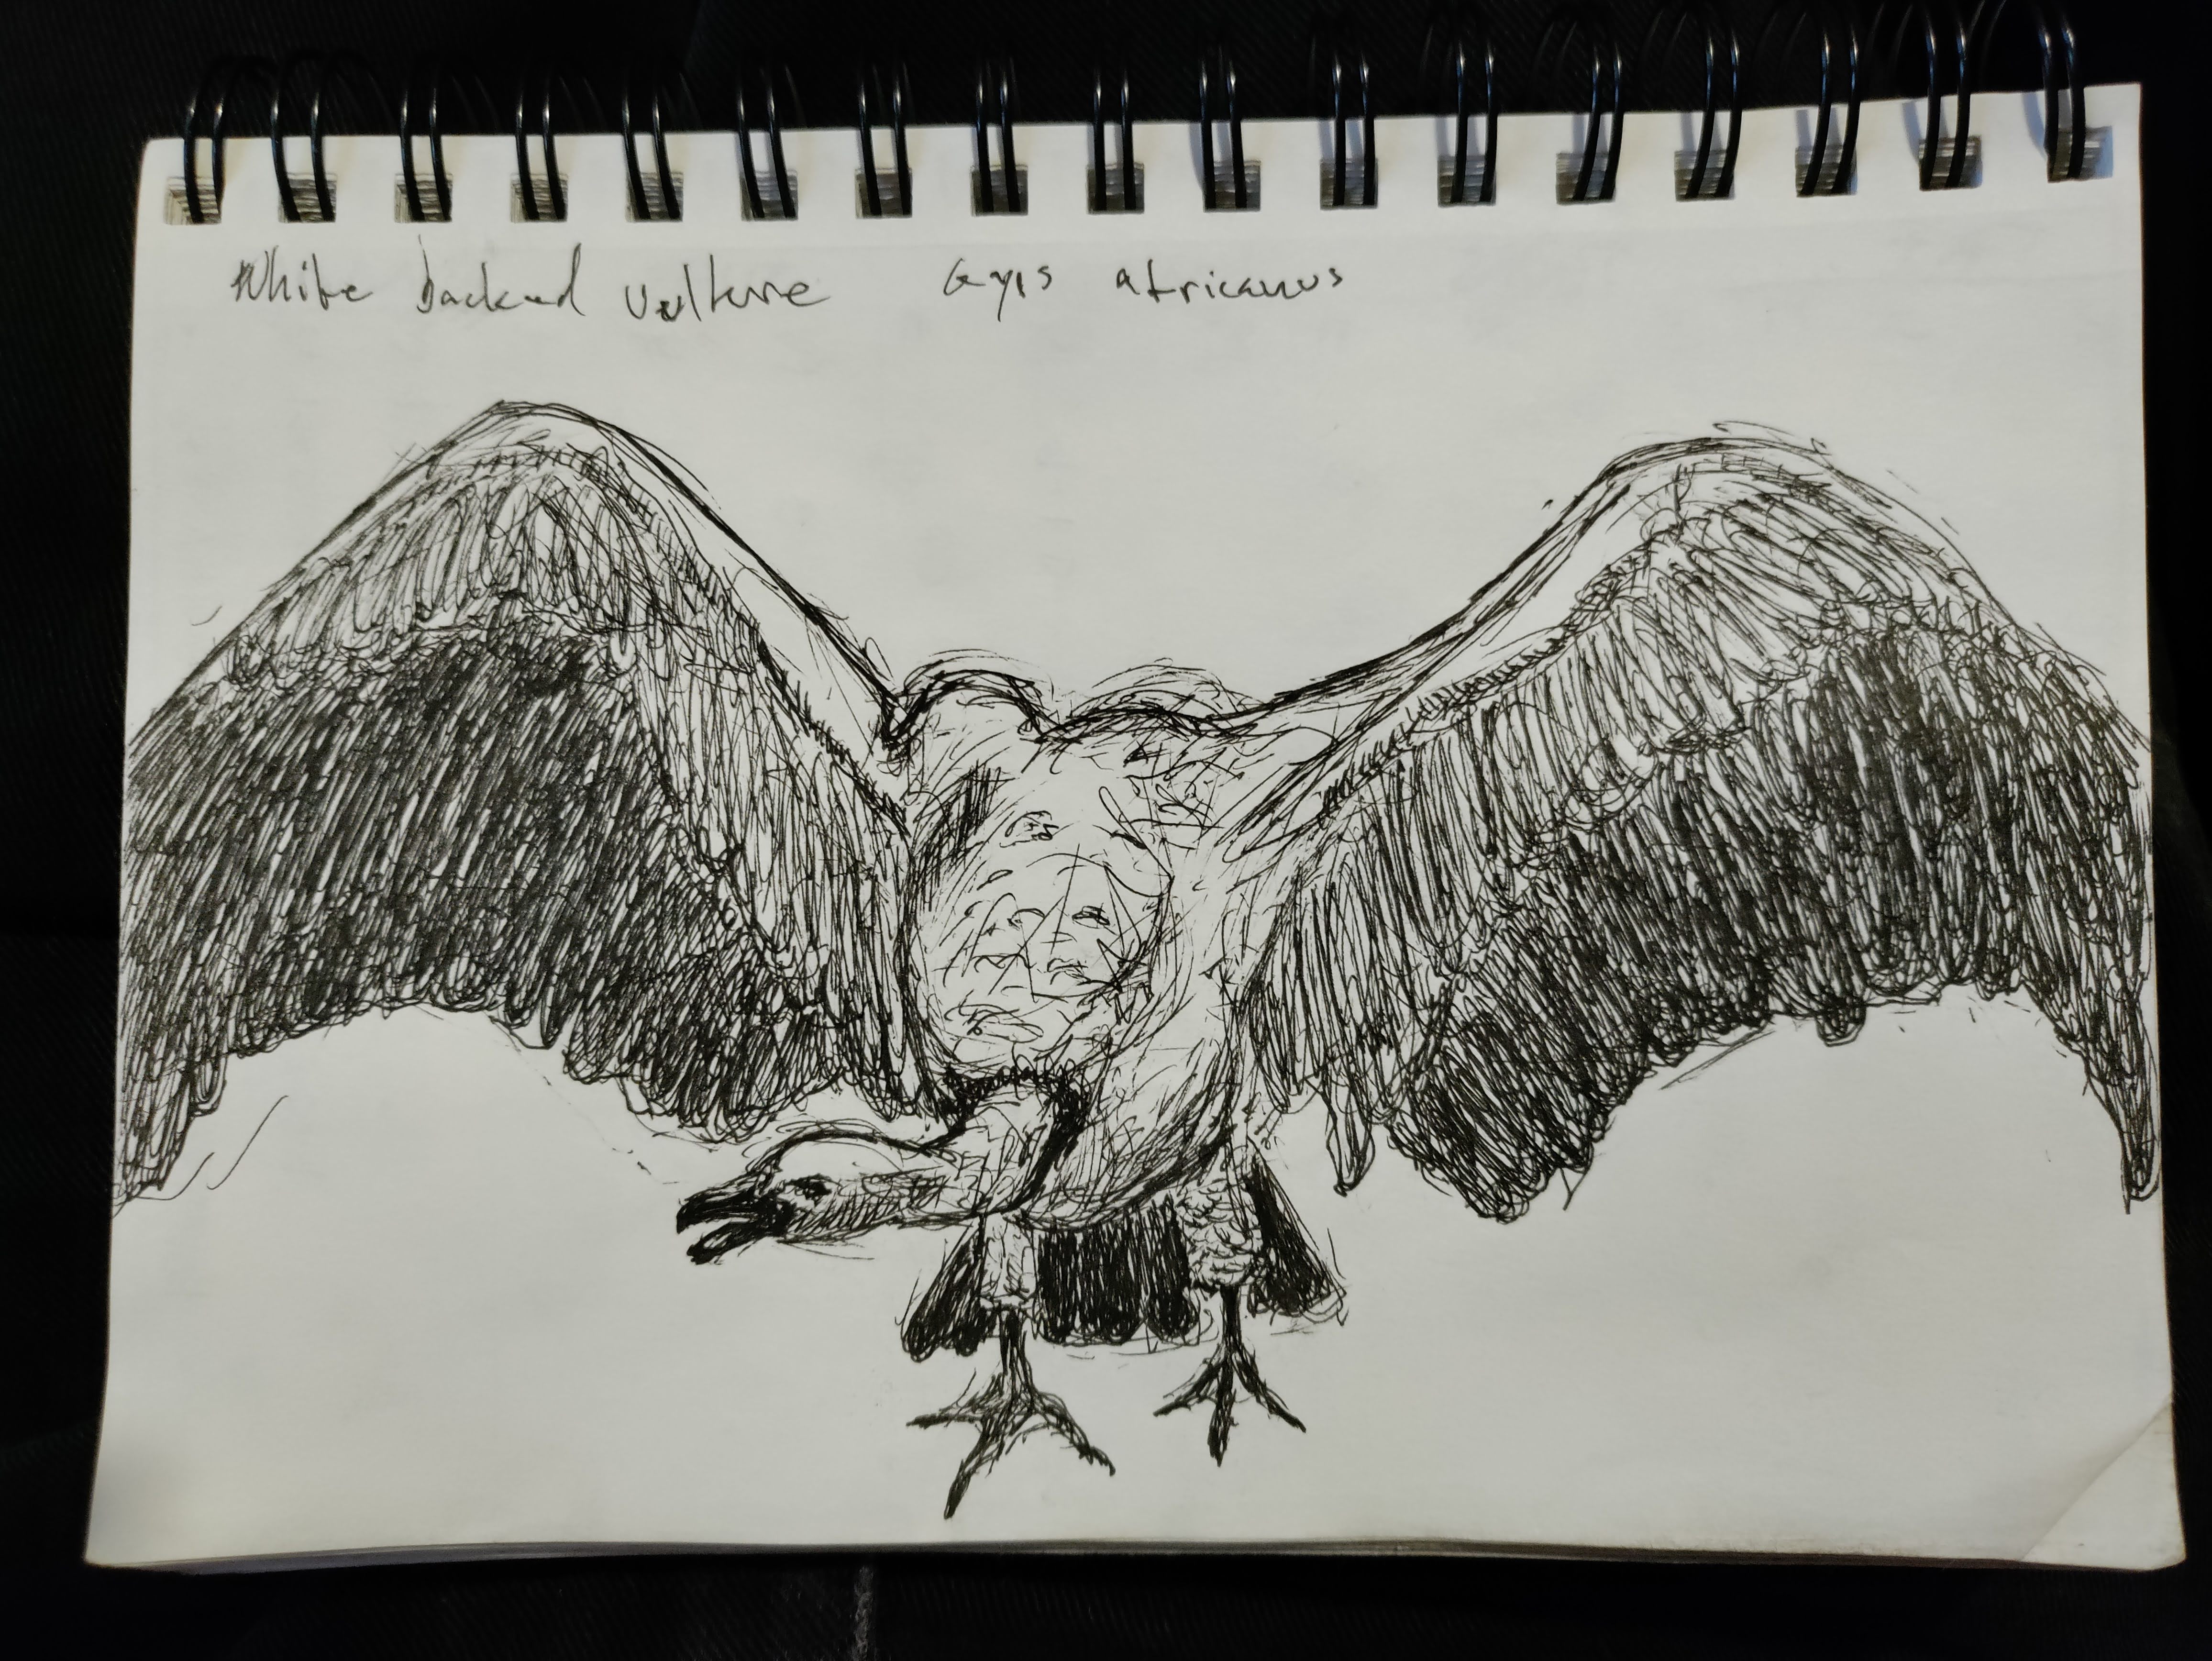 White backed vulture Gyps africanus